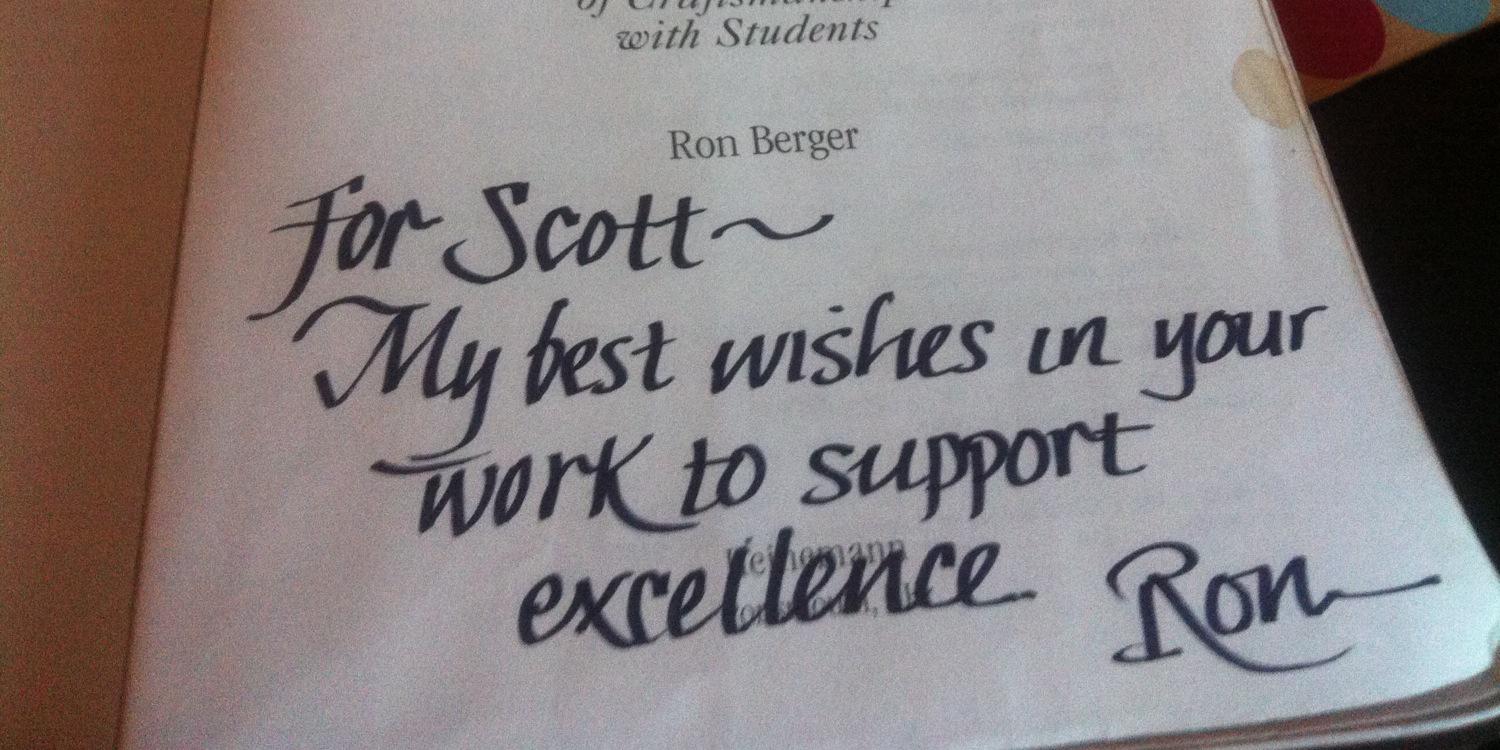 of Craftsmanship
with Students
Ron Berger
For Scott~
My best wishes in your
work to support
Heinemann
excellence Ron